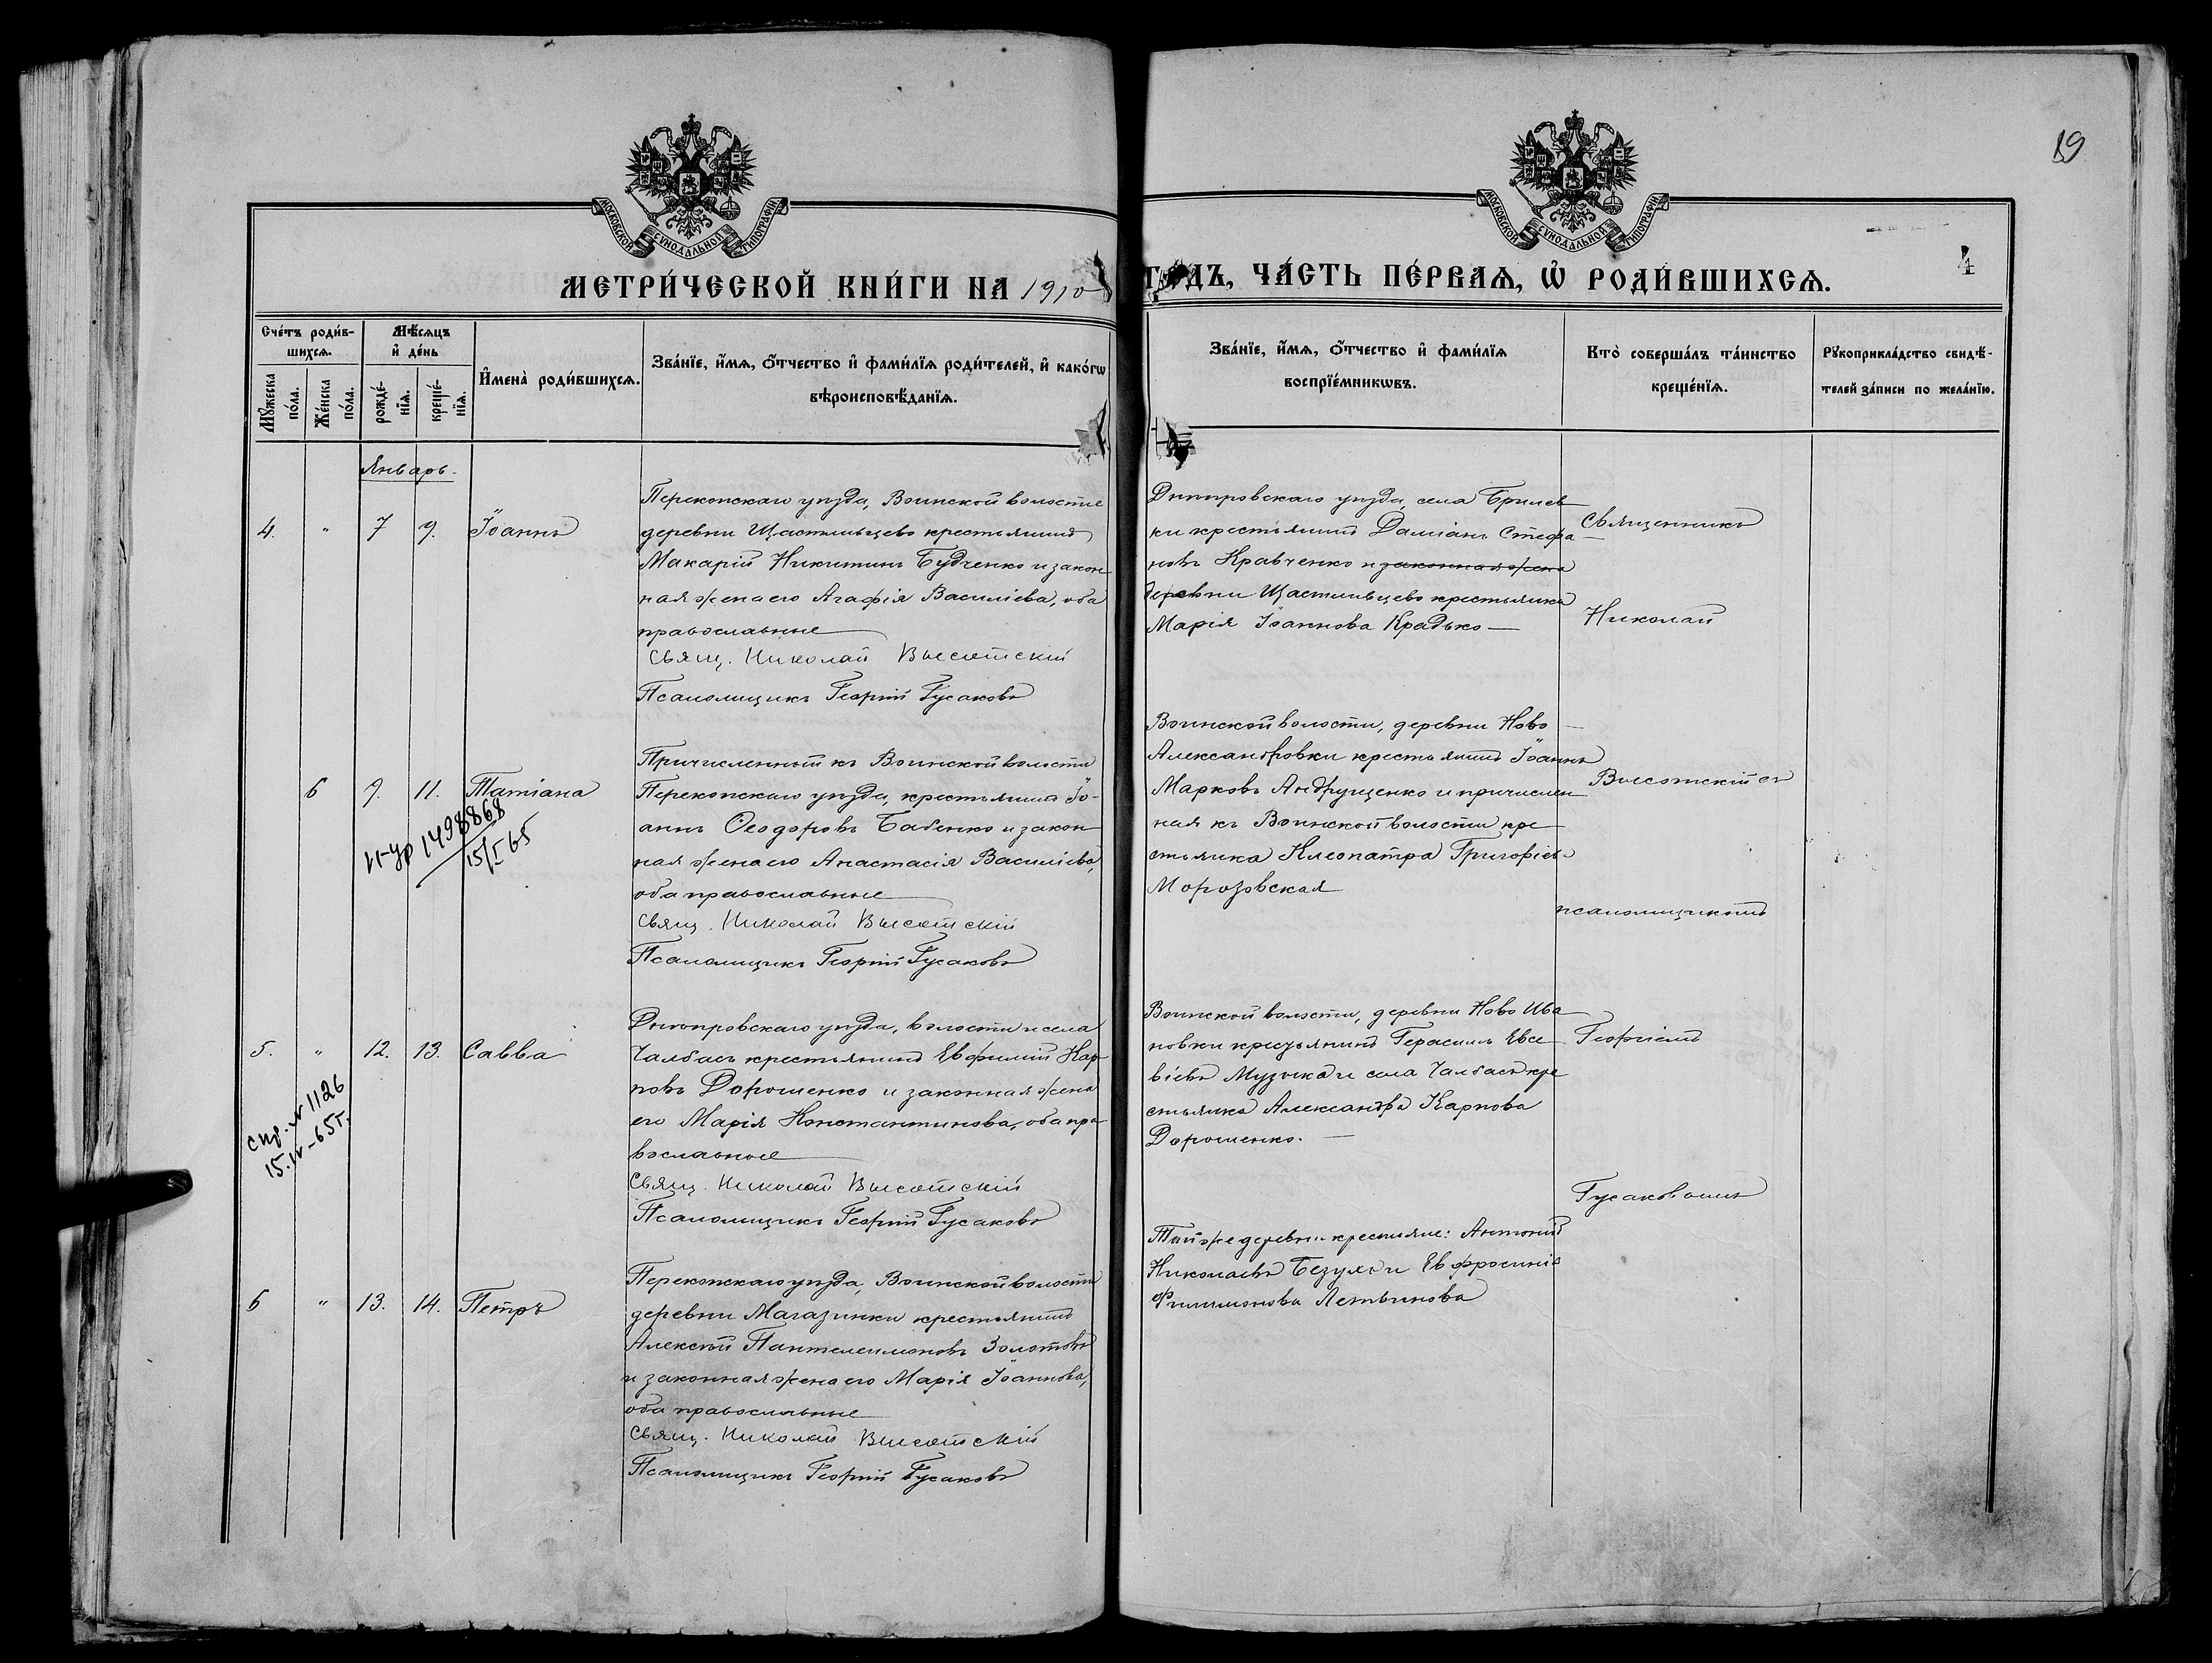 19
4
МОСКОВСКОЙ СѴНОДАЛЬНОЙ ТИПОГРАФІИ
МОСКОВСКОЙ СѴНОДАЛЬНОЙ ТИПОГРАФІИ
МЕТРИ́ЧЕСКОЙ КНИ́ГИ НА 1910 ГОДЪ, ЧА́СТЬ ПЕ́РВАѦ, Ѡ РОДИ́ВШИХСѦ.
Сче́тъ роди́в-
шихсѧ.
Мꙋ́жеска
по́ла.
Же́нска
по́ла.
Мѣ́сѧцъ
и҆ де́нь
рожде́-
нїѧ.
креще́-
нїѧ.
И҆мена̀ роди́вшихсѧ.
Зва́нїе, и҆́мѧ, ѻ҆́тчество и҆ фами́лїѧ роди́телей, и҆ како́гѡ
вѣроисповѣ́данїѧ.
Зва́нїе, и҆́мѧ, ѻ҆́тчество и҆ фами́лїѧ
воспрїе́мникѡвъ.
Кто̀ соверша́лъ та́инство
креще́нїѧ.
Рꙋкоприкла́дство свидѣ́-
телей за́писи по жела́нїю.
Январь
4. " 7 9. Іоаннъ
Перекопскаго уѣзда, Воинской волости
деревни Щастливцево крестьянинъ
Макарій Никитинъ Будченко и закон
ная жена его Агафія Василіева, оба
православные
Свящ. Николай Высотскій
Псаломщикъ Георгій Гусаковъ
Днѣпровскаго уѣзда, села Брилев
ки крестьянинъ Даміанъ Стефа
новъ Кравченко и законная жена
деревни Щастливцево крестьянка
Марія Іоаннова Крадько
Священникъ
Николай
6 9. 11. Татіана
и-ур 1498868
15/I 65
Причисленный къ Воинской волости
Перекопскаго уѣзда, крестьянинъ Іо-
аннъ Ѳеодоровъ Бабенко и закон
ная жена его Анастасія Василіева,
оба православные
Свящ. Николай Высотскій
Псаломщикъ Георгій Гусаковъ
Воинской волости, деревни Ново
Александровки крестьянинъ Іоаннъ
Марковъ Андрущенко и причислен
ная къ Воинской волости кре
стьянка Клеопатра Григоріева
Морозовская
Высотскій съ
псаломщикомъ
5. " 12. 13. Савва
спр. № 1126
15.IV-65г.
Днѣпровскаго уѣзда, волости и села
Чалбасъ крестьянинъ Евфимій Кар
повъ Дорошенко и законная жена
его Марія Константинова, оба пра
вославные
Свящ. Николай Высотскій
Псаломщикъ Георгій Гусаковъ
Воинской волости, деревни Ново Ива
новки крестьянинъ Герасимъ Евсе
віевъ Музыка и села Чалбасъ кре
стьянка Александра Карпова
Дорошенко.
Георгіемъ
Гусаковымъ
6 " 13. 14. Петръ
Перекопскаго уѣзда, Воинской волости
деревни Магазинки крестьянинъ
Алексѣй Пантелеимоновъ Золотовъ
и законная жена его Марія Іоаннова,
оба православные
Свящ. Николай Высотскій
Псаломщикъ Георгій Гусаковъ
Той же деревни крестьяне: Антоній
Николаевъ Безухъ и Евфросинія
Филимонова Летвинова